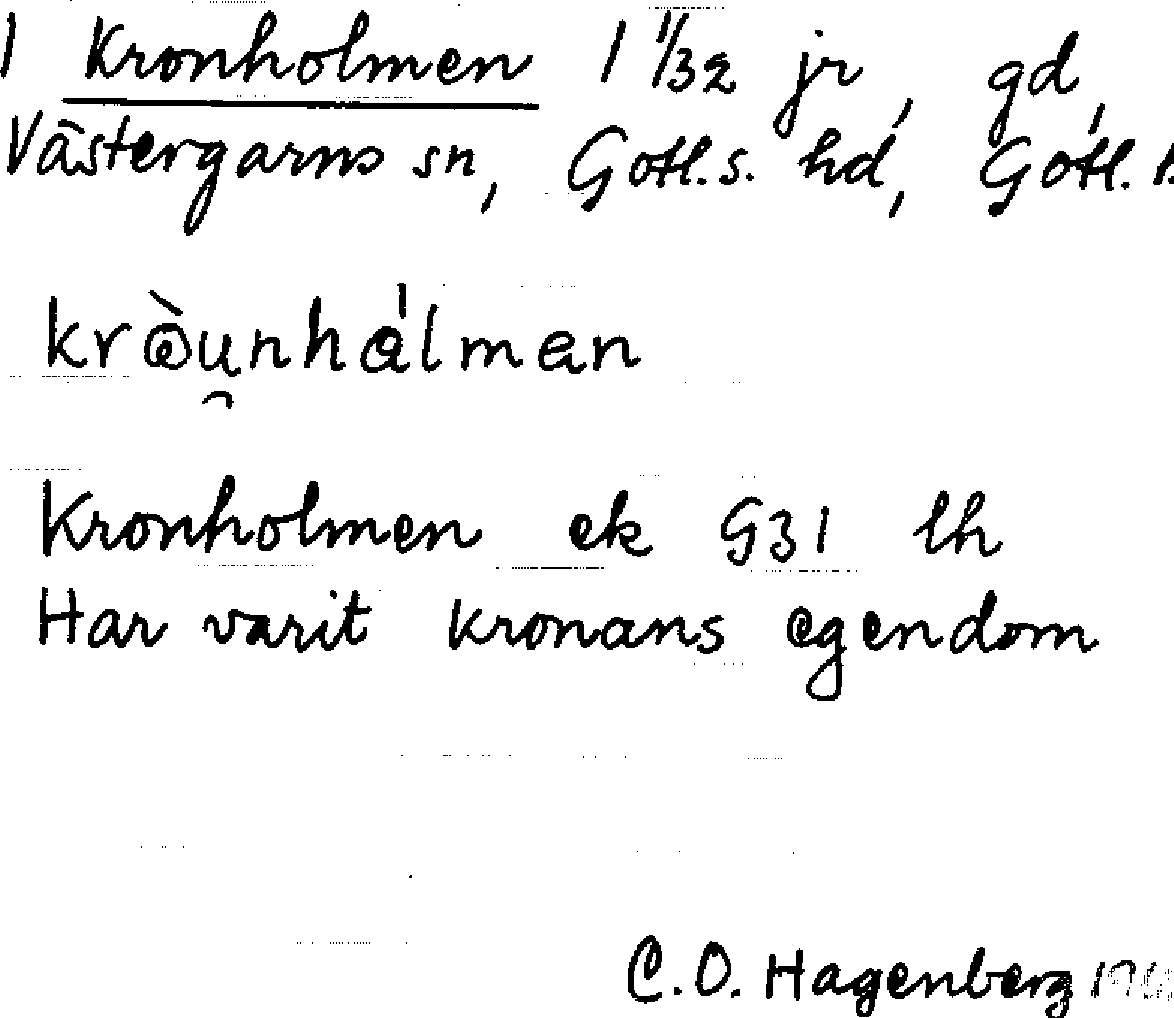 1 Kronholmen 1 11/32 jr, gd,
Västergarns sn, Gotl. s. hd, Gotl. l.
kròu̯nhálmən
Kronholmen ek G31 lh
Har varit kronans egendom
C. O. Hagenberg